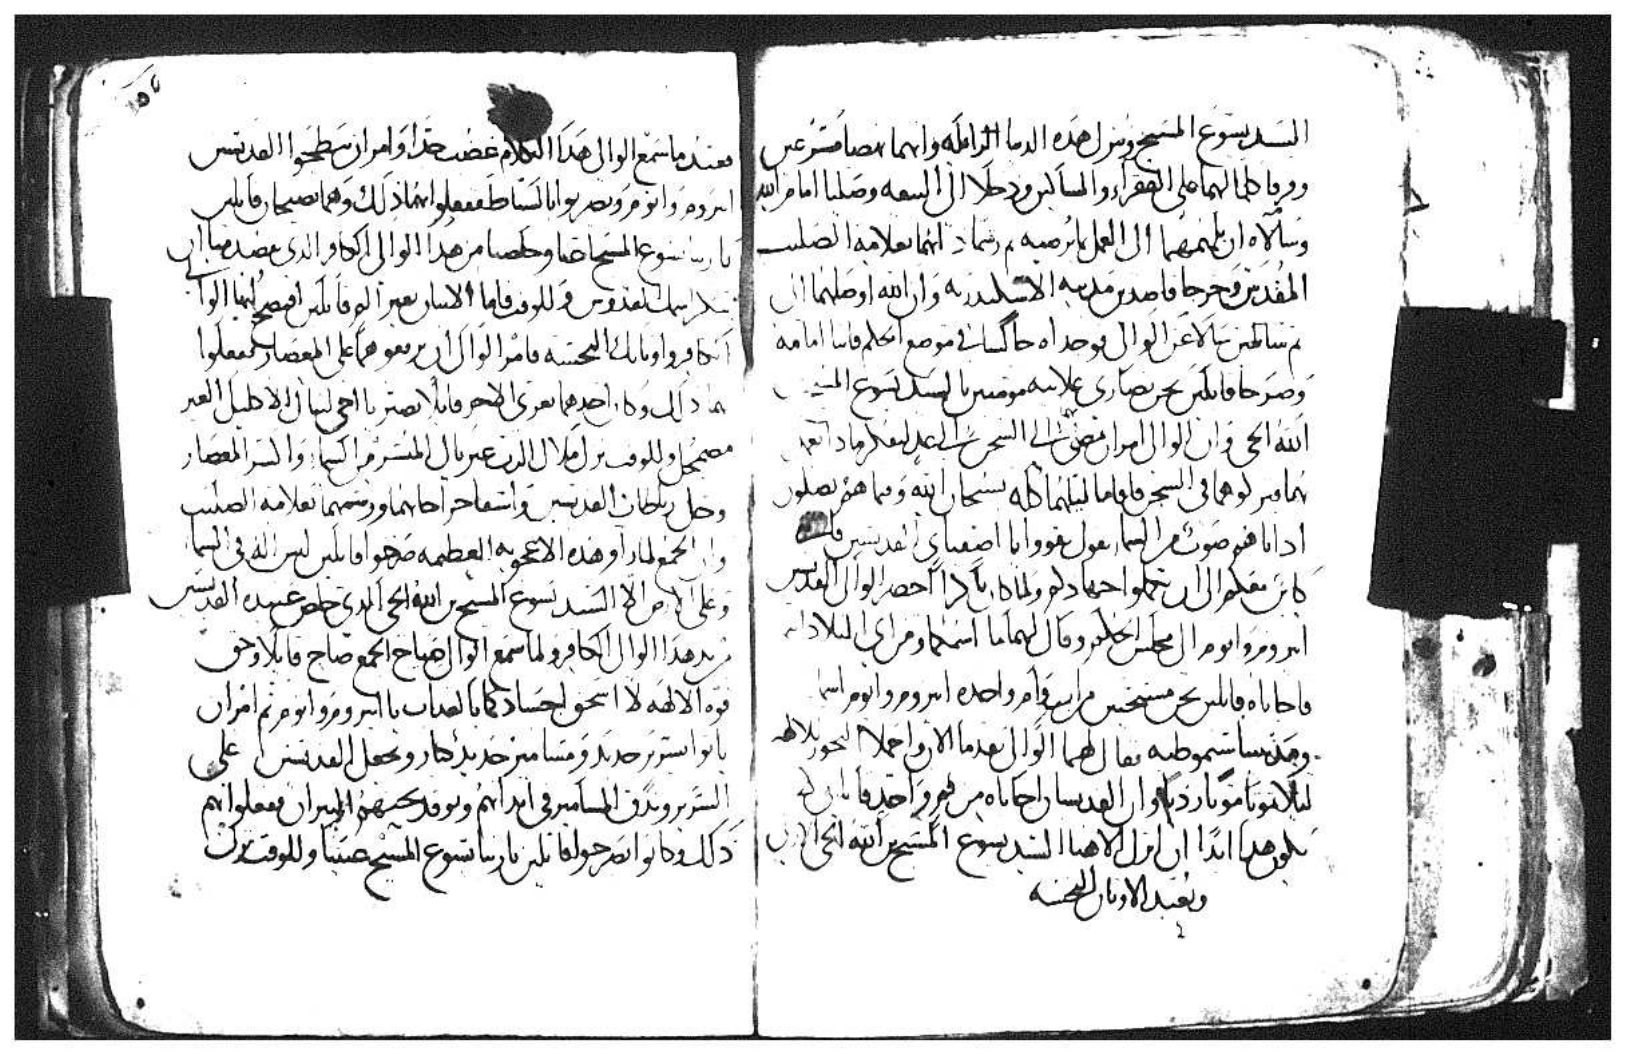 السيد يسوع المسيح ونزل هذه الدما الزايله وانهما نهضا مسرعين
وفرقا كلما لهما على الفقراء والمساكين ودخلا الى البيعه وصليا امام الله
وسالاه ان يلهمهما الى العمل بما يرضيه ثم رشما ذاتهما بعلامة الصليب
المقدس وخرجا قاصدين مدينه الاسكندريه وان الله اوصلهما الى
ثم سالمين سالا عن الوالى فوجداه جالسا فى موضع الحكم فاتيا امامه
وصرخا قايلين نحن نصارى علانيه مومنين بالسيد يسوع المسيح
الله الحى وان الوالى امر ان الى السجن الى غد ليفكر ماذا يفعل
بهما فتركوهما فى السجن فاقاما ليلتهما كله يسبحان الله وفيما هم يصلون
اذ اتاهم صوت من السماء يقول تقووا يا اصفياى القديسين
كاين معكم الى ان تكملوا جهادكم ولما كان باكرا احضر الوالى القديسين
ابيروم واتوم الى مجلس الحكم وقال لهما ما اسمكما ومن اى البلاد انتم
فاجاباه قايلين نحن مسيحيين من اب وام واحده ابيروم واتوم اسما
ومدينتنا سنموطيه فقال لهما الوالى تقدما الان واحملا البخور للالهه
ليلا تموتا موتا رديا وان القديسان اجاباه من فم واحد قايلين لم
يكون هذا ابدا ان نترك الاهنا السيد يسوع المسيح بن الله الحى الازلى
ونعبد الاوثان النجسه
فعند ما سمع الوالى هذا الكلام غضب جدا وامر ان يبطحوا القديسين
ابيروم واتوم ويضربوا بالسياط ففعلوا بهما ذلك وهما يصيحان قايلين
يا ربنا يسوع المسيح اعنا وخلصنا من هذا الوالى الكافر الذى
ننكر اسمك القدوس وللوقت قاما الاثنان بغير الم قايلين افتضح ايها الوالى
الكافر واوثانك النجسه فامر الوالى ان يرفعوهما على المعصار ففعلوا
بهما ذلك وكان احدهما يعزى الاخر قايلا اصبر يا اخى لننال الاكليل الغير
مضمحل وللوقت نزل ملاك الرب غبريال المبشر من السماء وانكسر المعصار
وحل رباطات القديسين واشفا جراحاتهما ورشمهما بعلامة الصليب
وان الجمع لما راوا هذه الاعجوبه العظيمه صرخوا قايلين ليس اله فى السماء
وعلى الارض الا السيد يسوع المسيح بن الله الحى الذى خلص عبيده القديسين
من يد هذا الوالى الكافر ولما سمع الوالى صياح الجمع صاح قايلا وحق
قوة الالهه لا اسحق اجسادكما بالعذاب يا ابيروم واتوم ثم امر ان
ياتوا بسرير حديد ومسامير حديد كبار ويجعل القديسين على
السرير وتدق المسامير فى ابدانهم ويوقد تحتهم النيران ففعلوا بهم
ذلك وكانوا يصرخوا قايلين يا ربنا يسوع المسيح وللوقت نزل